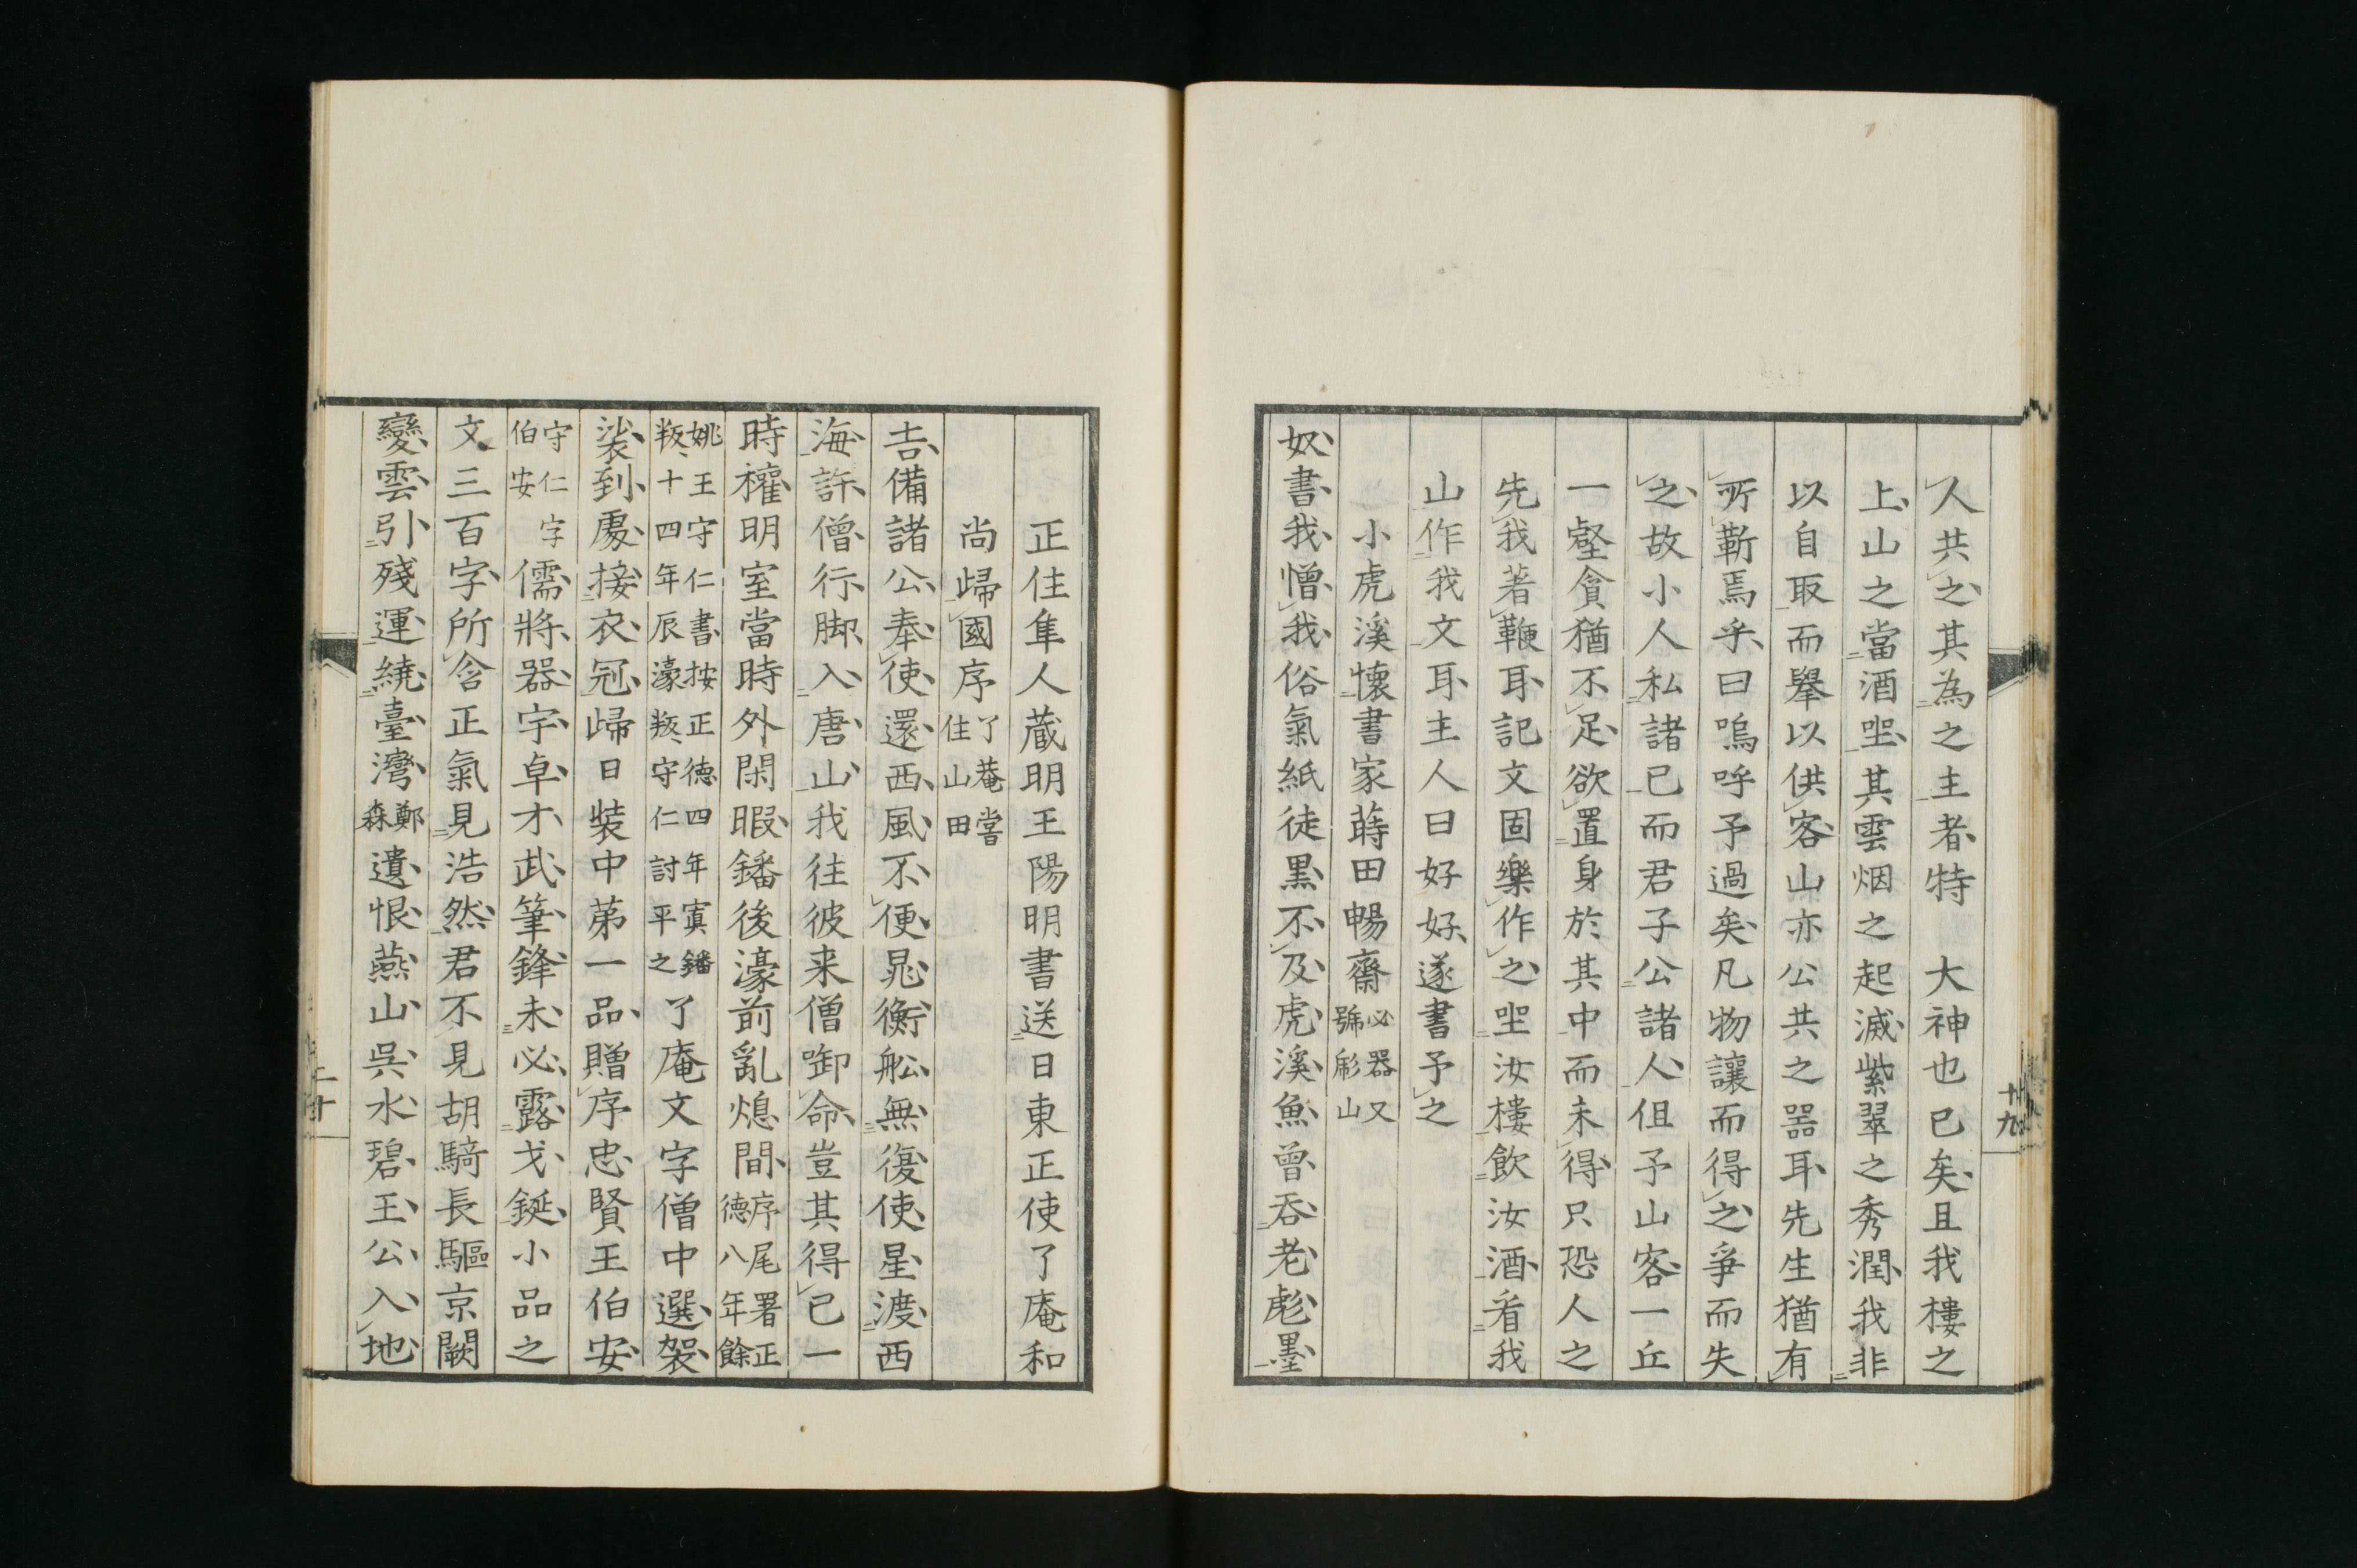 人共之其為之主者特　大神也已矣且我樓之
上山之當酒坐其雲烟之起滅紫翠之秀潤我非
以自取而擧以供客山亦公共之噐耳先生猶有
所靳焉乎曰嗚呼予過矣凡物讓而得之爭而失
之故小人私諸已而君子公諸人但予山客一丘
一壑貪猶不足欲置身於其中而未得只恐人之
先我著鞭耳記文固樂作之坐汝樓飲汝酒看我
山作我文耳主人曰好好遂書予之
小虎溪懷書家蒔田暢齋必器又號彪山
奴書我憎我俗氣紙徒黒不及虎溪魚曾吞老彪墨
十九
正住隼人蔵明王陽明書送日東正使了庵和
尚歸國序了菴嘗住山田
吉備諸公奉使還西風不便晁衡舩無復使星渡西
海許僧行脚入唐山我往彼来僧啣命豈其得已一
時權明室當時外閑暇鐇後濠前亂熄間序尾署正德八年餘
姚王守仁書按正德四年寘鐇叛十四年辰濠叛守仁討平之了庵文字僧中選袈
裟到處接衣冠歸日裝中苐一品贈序忠賢王伯安
守仁字伯安儒將器宇卓才武筆鋒未必露戈鋋小品之
文三百字所含正氣見浩然君不見胡騎長驅京闕
變雲引殘運繞臺灣鄭森遺恨燕山呉水碧王公入地
二十